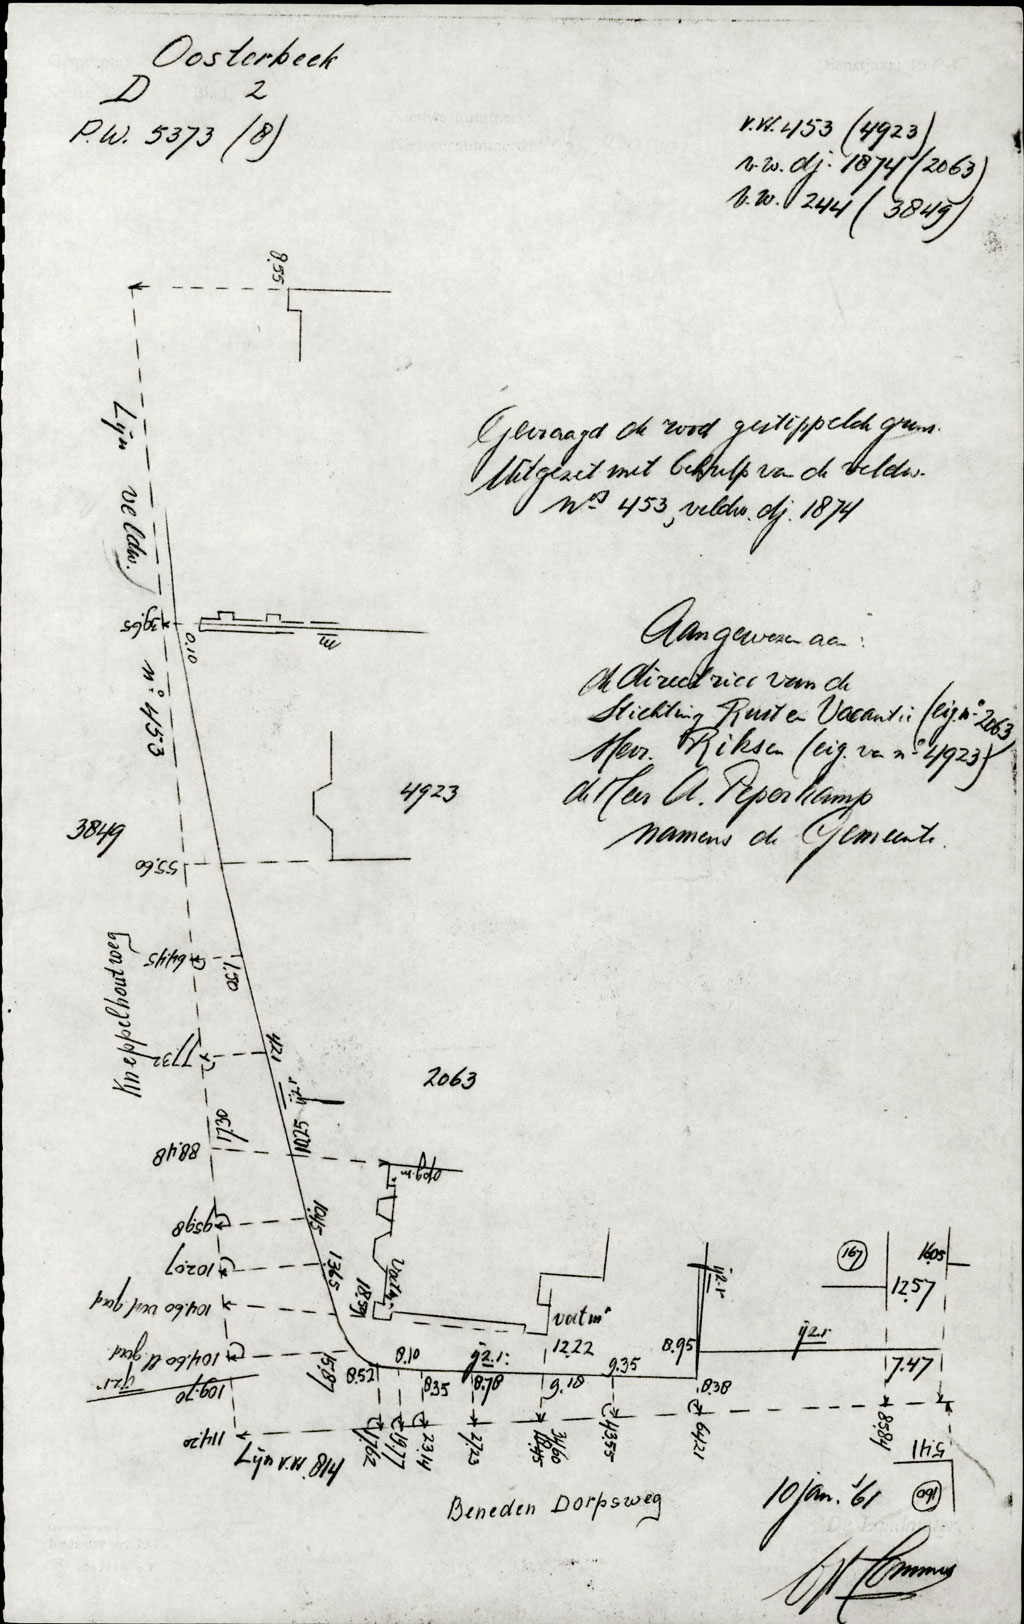 Oosterbeek
D 2
P.W. 5373 (8)
v.w. 453 (4923)
v.w. dj. 1874 (2063)
v.w. 244 (3849)
9.55
Lijn veldw. n° 453
Gevraagd de rood gestippelde grens.
Uitgezet met behulp van de veldw.
nos 453, veldw. dj. 1874
39.65
0.10
m
Aangewezen aan:
de directrice van de
Stichting Rust en Vacantie (eig. n° 2063)
Mevr. Riksen (eig. van n° 4923)
de Heer A. Peperkamp
namens de Gemeente.
4923
3849
55.60
Kneppelhoutweg
64.45
1.50
77.32
4.21
2063
ijz.r
88.48
17.30
10.25
opg.m.
95.98
10.45
102.07
13.65
104.60 verl. gevel
18.59
104.60
15.87
109.70
ijz.r
114.20
8.52
8.10
8.35
ijz.r.
8.78
12.22
9.18
9.35
8.95
8.38
ijz.r
167
16.05
12.57
ijz.r.
7.47
17.62
19.77
23.14
27.23
34.60
18.45
43.55
64.21
85.84
5.41
160
Lijn v.w. 418
Beneden Dorpsweg
10 jan. '61